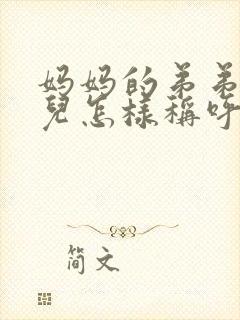 妈妈的弟弟
兒怎樣稱呼
简文